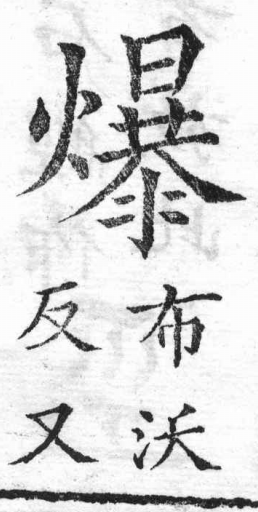 爆
布沃
反又